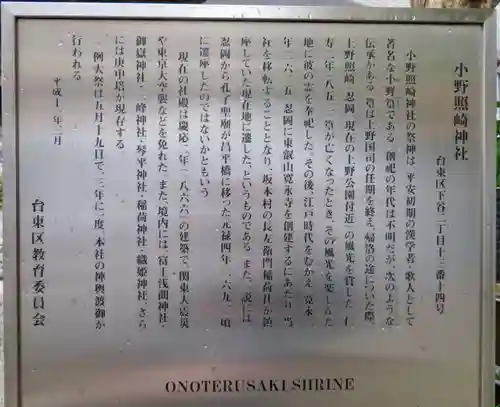 小野照崎神社
台東区下谷二丁目十三番十四号
小野照崎神社の祭神は、平安初期の漢学者・歌人として
著名な小野篁である。創祀の年代は不明だが、次のような
伝承がある。篁は上野国司の任期を終え、帰洛の途についた際、
上野照崎(忍岡、現在の上野公園付近)の風光を賞した。仁
寿二年(八五二)篁が亡くなったとき、その風光を楽しんだ
地に彼の霊を奉祀した。その後、江戸時代をむかえ、寛永
年(一六二五)忍岡に東叡山寛永寺を創建するにあたり、当
社を移転することとなり、坂本村の長左衛門稲荷社が鎮
座していた現在地に遷した、というものである。また、一説には
忍岡から孔子聖廟が昌平橋に移った元禄四年(一六九一)頃
に遷座したのではないかともいう。
現在の社殿は慶応二年(一八六六)の建築で、関東大震災
や東京大空襲などを免れた。また、境内には、富士浅間神社・
御嶽神社・三峰神社・琴平神社・稲荷神社・織姫神社、さら
には庚申塔が現存する。
例大祭は五月十九日で、三年に一度、本社の神輿渡御が
行われる。
平成十 年三月
台東区教育委員会
ONOTERUSAKI SHRINE